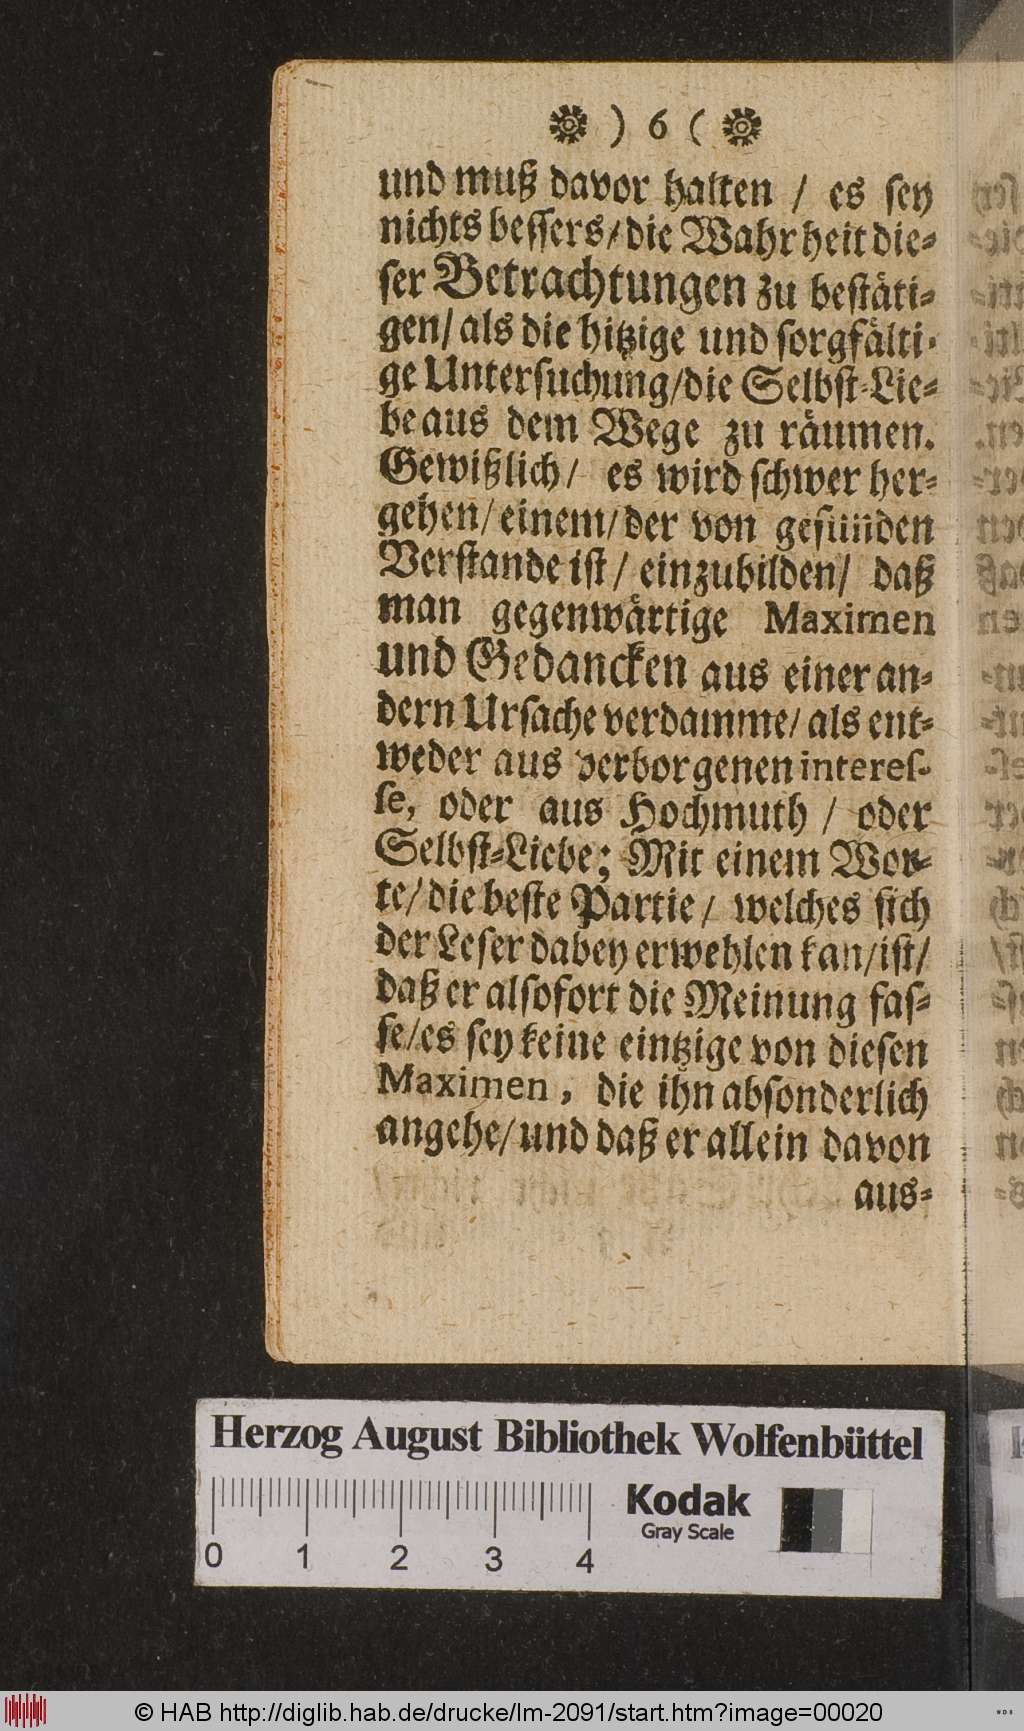 ) 6 (
und muß davor halten / es sey
nichts bessers/die Wahrheit die-
ser Betrachtungen zu bestäti-
gen/ als die hitzige und sorgfälti-
ge Untersuchung/die Selbst-Lie-
be aus dem Wege zu räumen.
Gewißlich/ es wird schwer her-
gehen/einem/der von gesunden
Verstande ist/ einzubilden/ daß
man gegenwärtige Maximen
und Gedancken aus einer an-
dern Ursache verdamme/ als ent-
weder aus verborgenen interes-
se, oder aus Hochmuth / oder
Selbst-Liebe; Mit einem Wor-
te/die beste Partie/ welches sich
der Leser dabey erwehlen kan/ist/
daß er alsofort die Meinung fas-
se/es sey keine eintzige von diesen
Maximen, die ihn absonderlich
angehe/und daß er allein davon
aus-
Herzog August Bibliothek Wolfenbüttel
0 1 2 3 4
Kodak
Gray Scale
© HAB http://diglib.hab.de/drucke/lm-2091/start.htm?image=00020